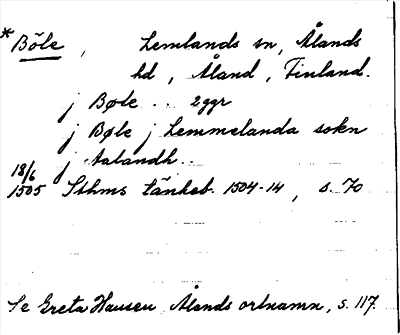 * Böle, Lemlands sn, Ålands
hd, Åland, Finland.
j Bøle .. 2 ggr
j Bøle j Lemmelanda sokn
j Aalandh..
18/6 1505 Sthms tänkeb. 1504-14, s. 70
Se Greta Hausen, Ålands ortnamn, s. 117.